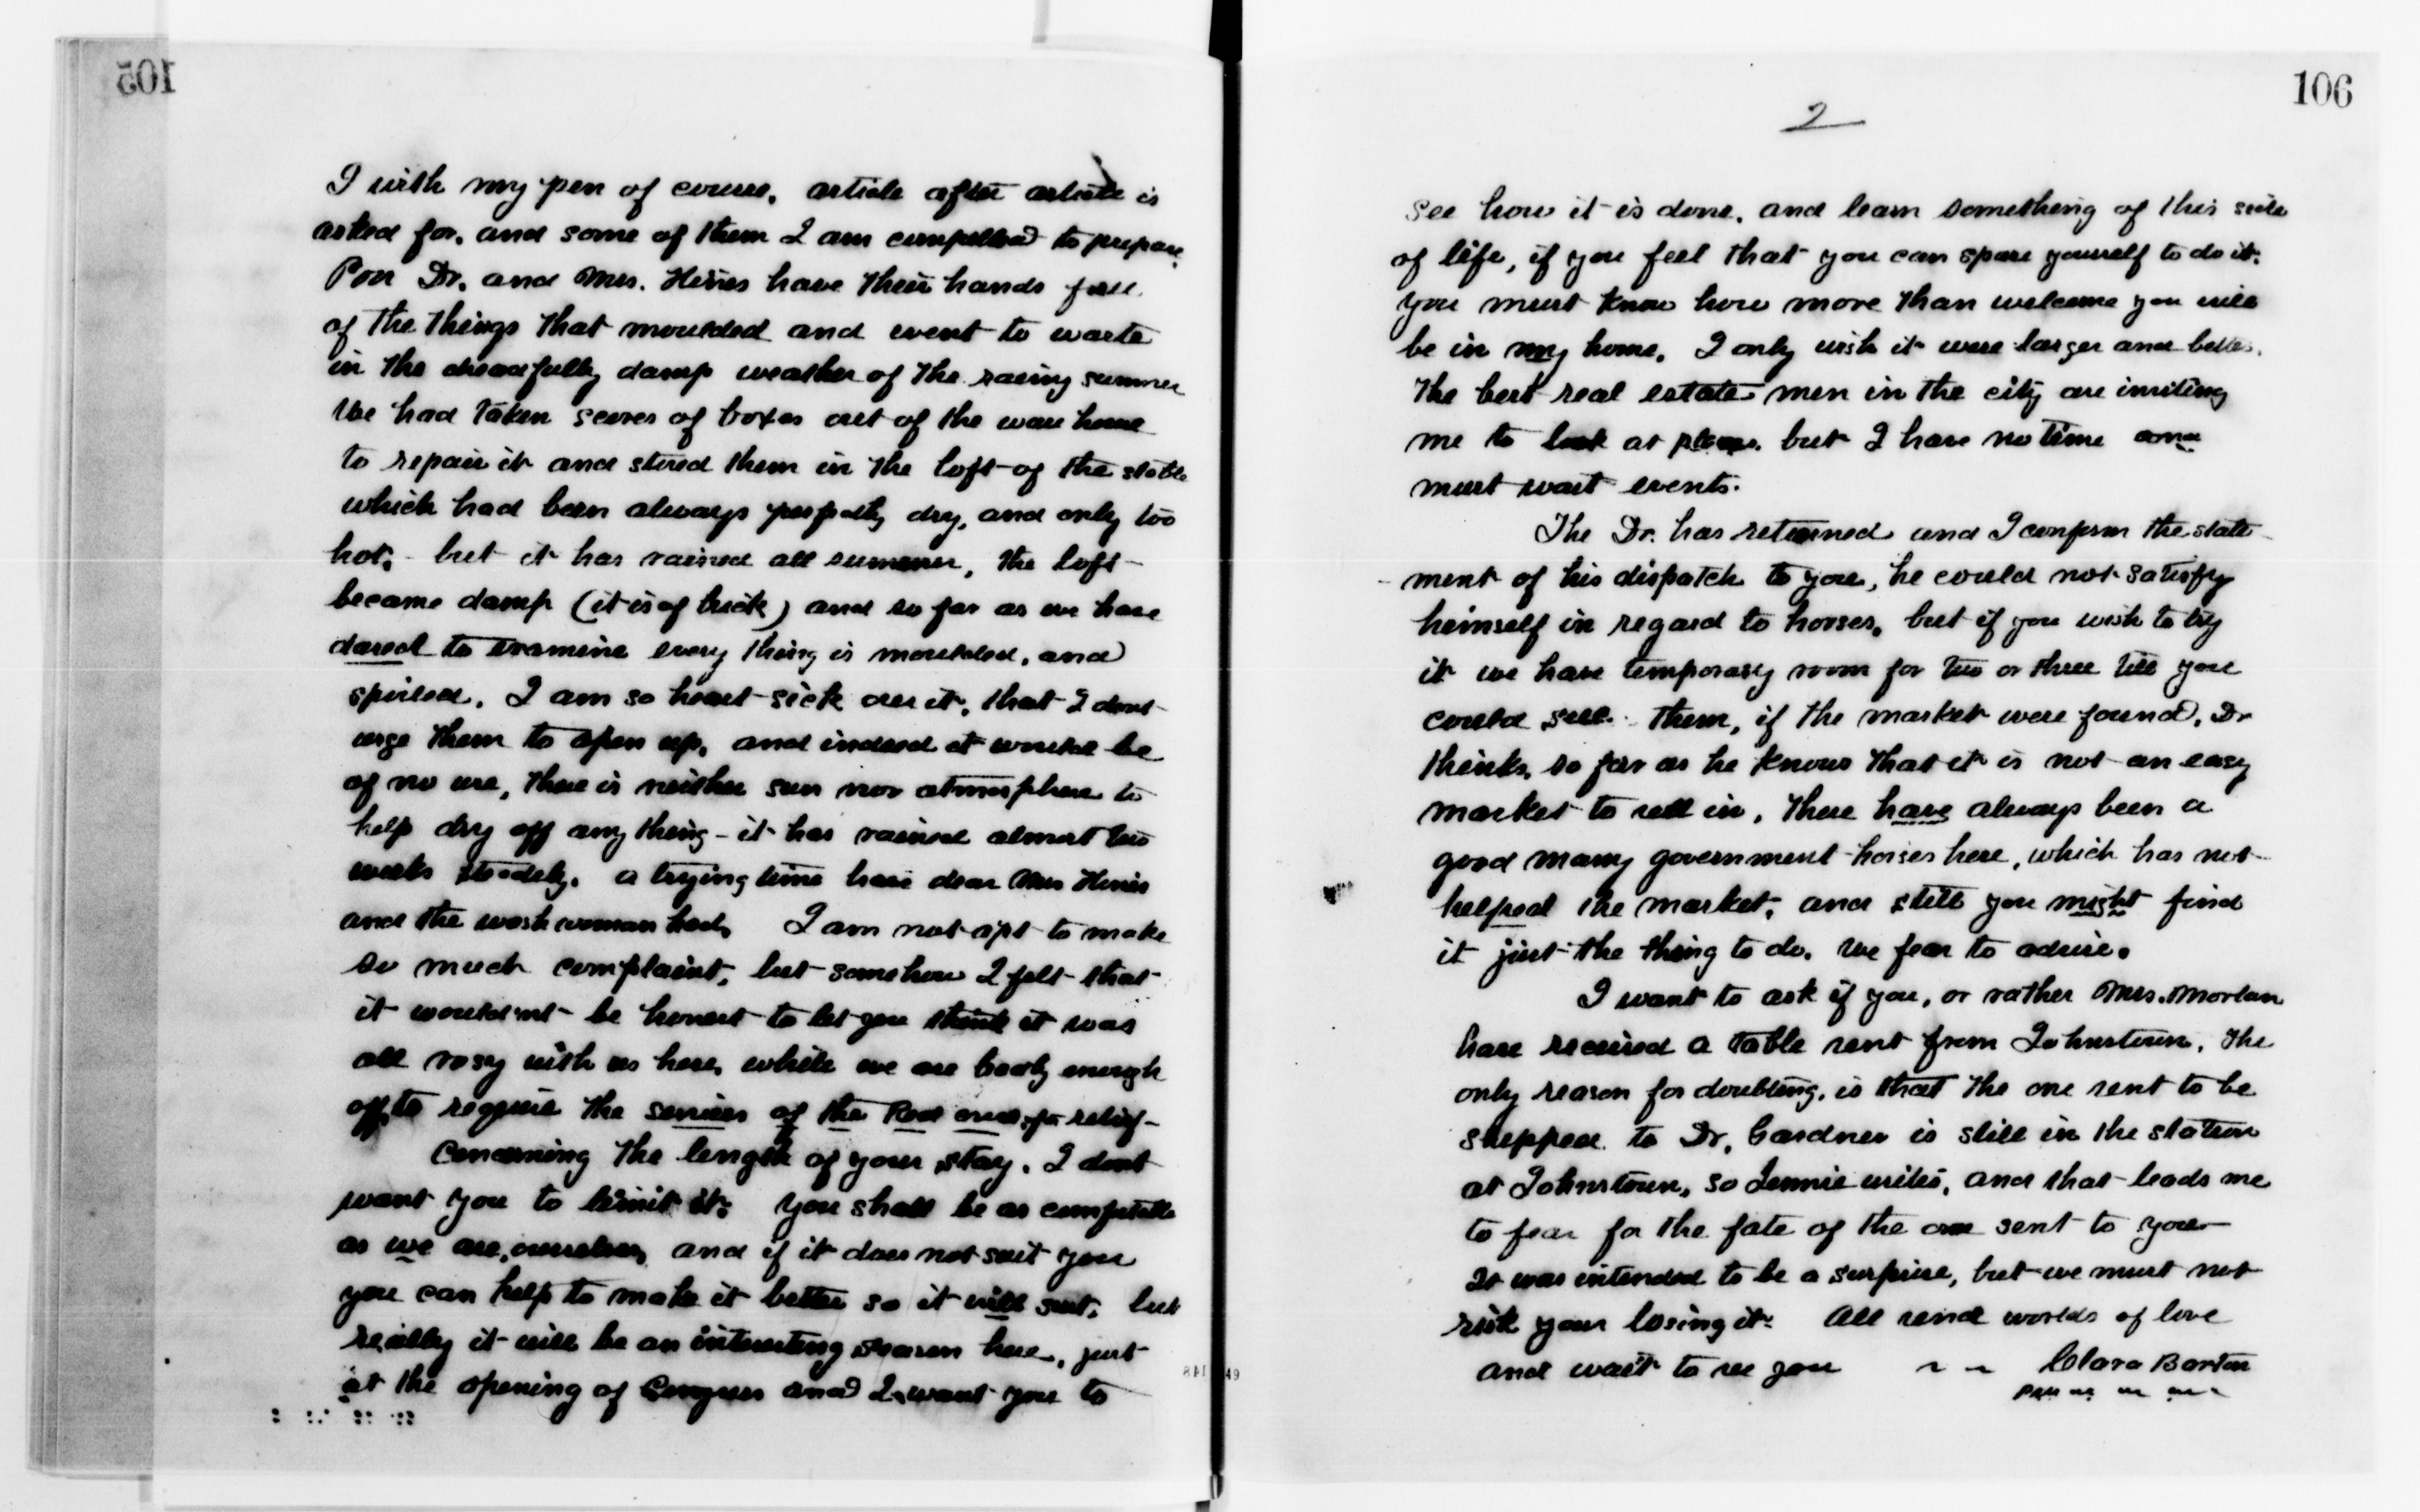 105
I with my pen of course, article after article is
asked for, and some of them I am compelled to prepare.
Poor Dr. and Mrs. Hines have their hands full
of the things that moulded and went to waste
in the dreadfully damp weather of the rainy summer
We had taken scores of boxes out of the ware house
to repair it and stored them in the loft of the stable
which had been always perfectly dry, and only too
hot, - but it has rained all summer, the loft
became damp (it is of brick) and so far as we have
dared to examine every thing is moulded, and
spoiled. I am so heart-sick over it, that I dont
urge them to open up, and indeed it would be
of no use, there is neither sun nor atmosphere to
help dry off any thing - it has rained almost two
weeks steadily. a trying time have dear Mrs Hines
and the wash woman had. I am not apt to make
so much complaint, but somehow I felt that
it wouldnt be honest to let you think it was
all rosy with us here, while we are badly enough
off to require the services of the Red Cross for relief -
Concerning the length of your stay. I dont
want you to limit it. you shall be as comfortable
as we are, ourselves, and if it does not suit you
you can help to make it better so it will suit, but
really it will be an interesting season here, just
at the opening of Congress and I want you to
106
2
see how it is done, and learn something of this side
of life, if you feel that you can spare yourself to do it.
you must know how more than welcome you will
be in my home, I only wish it were larger and better.
The best real estate men in the city are inviting
me to look at places. but I have no time and
must wait events.
The Dr. has returned and I confirm the state
- ment of his dispatch to you, he could not satisfy
himself in regard to horses, but if you wish to try
it we have temporary room for two or three till you
could sell them, if the market were found, Dr
thinks, so far as he knows that it is not an easy
market to sell in, there have always been a
good many government horses here, which has not
helped the market, and still you might find
it just the thing to do. We fear to advise.
I want to ask if you, or rather Mrs. Morlan
have received a table sent from Johnstown, The
only reason for doubting, is that the one sent to be
shipped to Dr. Gardner is still in the station
at Johnstown, so Jennie writes, and that leads me
to fear for the fate of the one sent to you
It was intended to be a surprise, but we must not
risk your losing it. All send worlds of love
and wait to see you ~ ~ Clara Barton